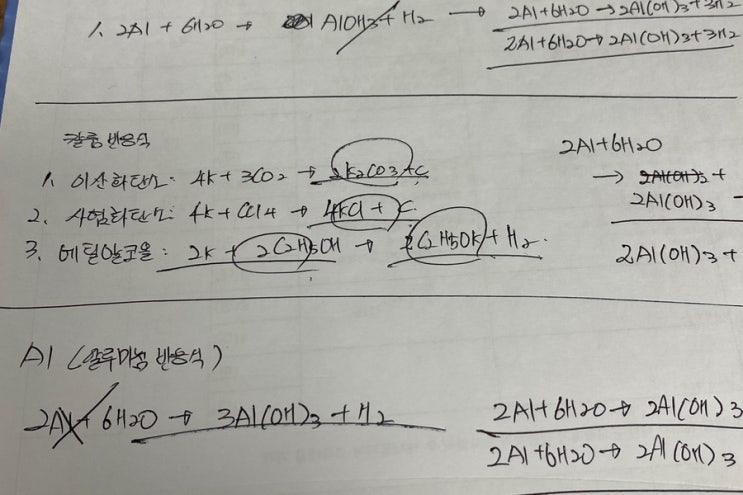 1. 2Al + 6H2O → AlOH3 + H2 → 2Al+6H2O → 2Al(OH)3+3H2
2Al+6H2O → 2Al(OH)3+3H2
칼륨 반응식
1. 이산화탄소: 4K+3CO2 → 2K2CO3+C
2. 사염화탄소: 4K+CCl4 → 4KCl + C
3. 에틸알코올: 2K + 2C2H5OH → 2C2H5OK + H2.
2Al+6H2O
→ 2Al(OH)3 +
2Al(OH)3 -
2Al(OH)3 +
Al (알루미늄 반응식)
2Al + 6H2O → 3Al(OH)3 + H2
2Al+6H2O → 2Al(OH)3
2Al+6H2O → 2Al(OH)3